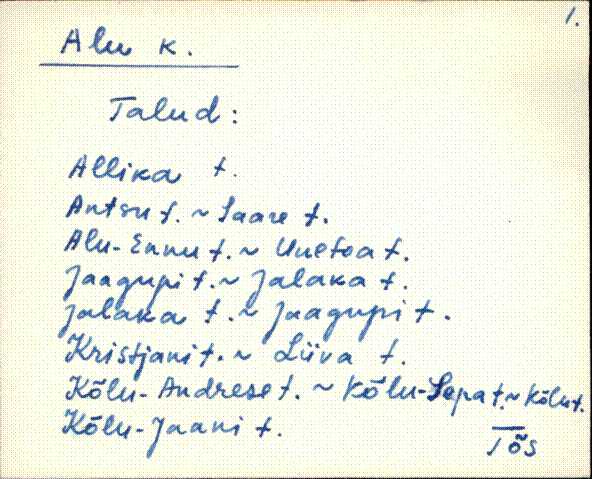 1.
Alu k.
Talud:
Allika t.
Antsu t. ~ Saare t.
Alu-Ennu t. ~ Uuetoa t.
Jaagupi t. ~ Jalaka t.
Jalaka t. ~ Jaagupi t.
Kristjani t. ~ Liiva t.
Kõlu-Andrese t. ~ Kõlu-Sepa t. ~ Kõlu t.
Kõlu-Jaani t.
Tõs